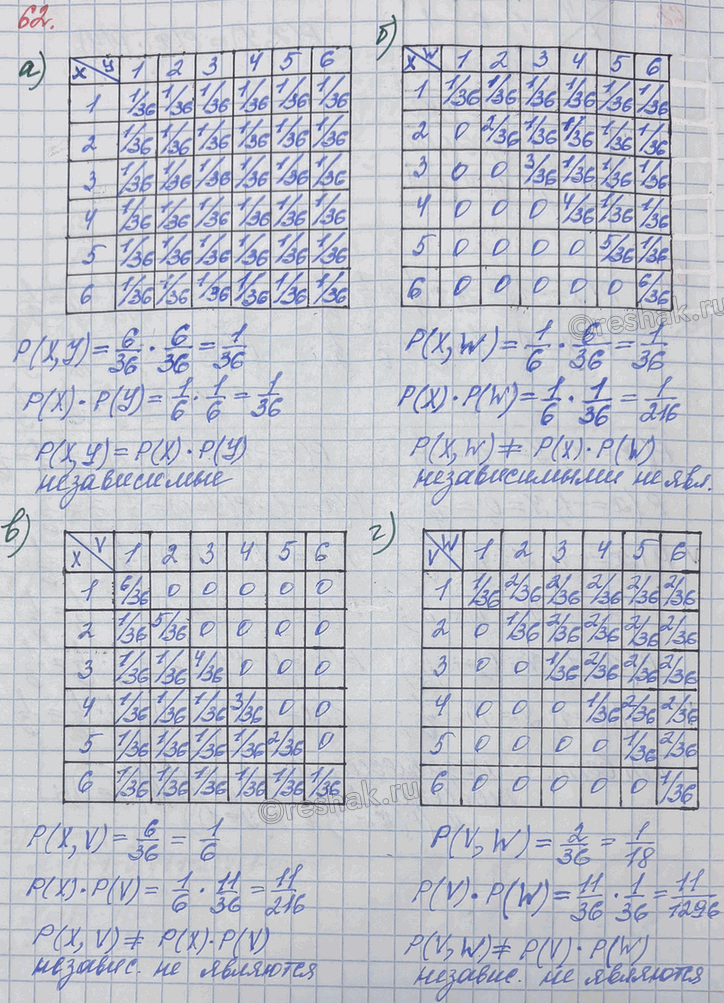 62.
а)
X Y 1 2 3 4 5 6
1 1/36 1/36 1/36 1/36 1/36 1/36
2 1/36 1/36 1/36 1/36 1/36 1/36
3 1/36 1/36 1/36 1/36 1/36 1/36
4 1/36 1/36 1/36 1/36 1/36 1/36
5 1/36 1/36 1/36 1/36 1/36 1/36
6 1/36 1/36 1/36 1/36 1/36 1/36
P(X,Y) = 6/36 · 6/36 = 1/36
P(X) · P(Y) = 1/6 · 1/6 = 1/36
P(X,Y) = P(X) · P(Y)
независимые
б)
X W 1 2 3 4 5 6
1 1/36 1/36 1/36 1/36 1/36 1/36
2 0 2/36 1/36 1/36 1/36 1/36
3 0 0 3/36 1/36 1/36 1/36
4 0 0 0 4/36 1/36 1/36
5 0 0 0 0 5/36 1/36
6 0 0 0 0 0 6/36
©reshak.ru
P(X,W) = 1/6 · 6/36 = 1/36
P(X) · P(W) = 1/6 · 1/36 = 1/216
P(X,W) ≠ P(X) · P(W)
независимыми не явл.
в)
X V 1 2 3 4 5 6
1 6/36 0 0 0 0 0
2 1/36 5/36 0 0 0 0
3 1/36 1/36 4/36 0 0 0
4 1/36 1/36 1/36 3/36 0 0
5 1/36 1/36 1/36 1/36 2/36 0
6 1/36 1/36 1/36 1/36 1/36 1/36
©reshak.ru
P(X,V) = 6/36 = 1/6
P(X) · P(V) = 1/6 · 11/36 = 11/216
P(X,V) ≠ P(X) · P(V)
независ. не являются
г)
V W 1 2 3 4 5 6
1 1/36 2/36 2/36 2/36 2/36 2/36
2 0 1/36 2/36 2/36 2/36 2/36
3 0 0 1/36 2/36 2/36 2/36
4 0 0 0 1/36 2/36 2/36
5 0 0 0 0 1/36 2/36
6 0 0 0 0 0 1/36
P(V,W) = 2/36 = 1/18
P(V) · P(W) = 11/36 · 1/36 = 11/1296
P(V,W) ≠ P(V) · P(W)
независ. не являются